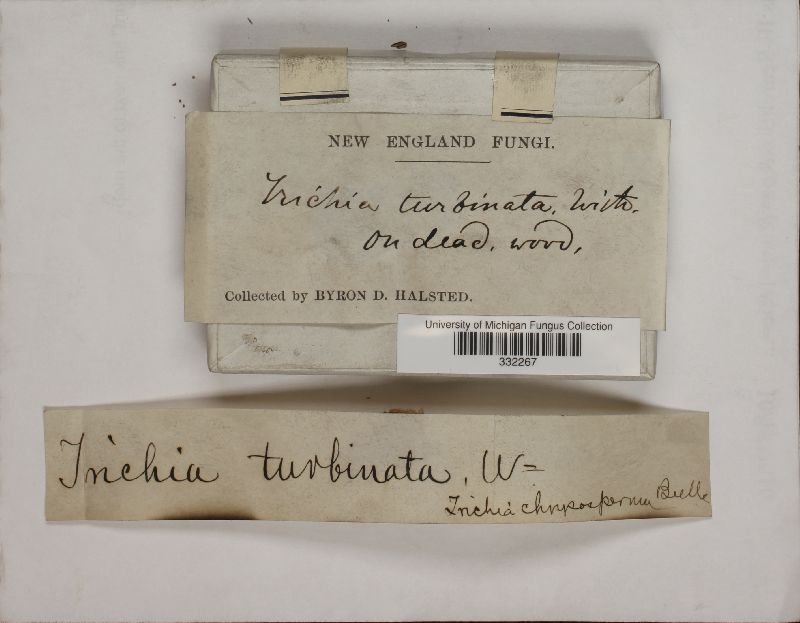 NEW ENGLAND FUNGI.
Trichia turbinata, With.
On dead, wood,
Collected by BYRON D. HALSTED.
University of Michigan Fungus Collection
332267
Trichia turbinata, W=
Trichia chrysosperma Bull